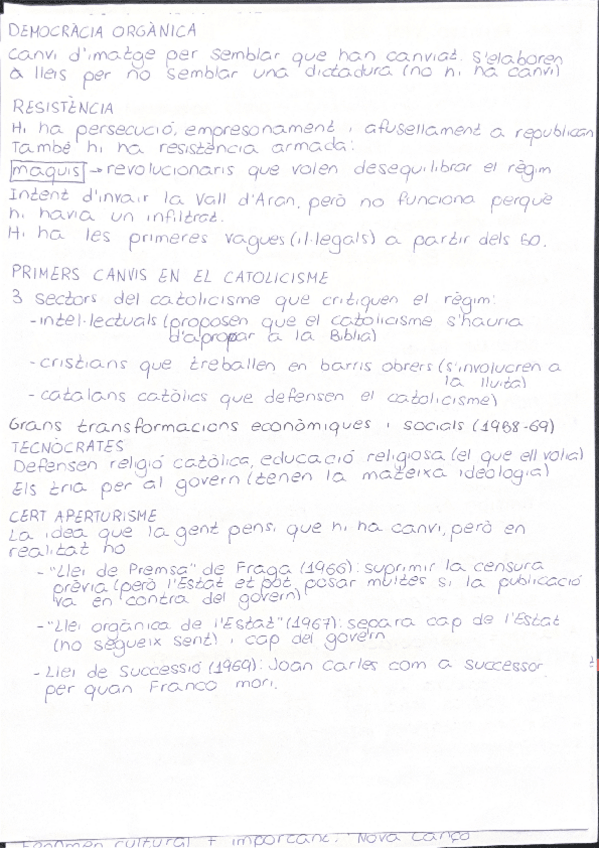 DEMOCRÀCIA ORGÀNICA
Canvi d'imatge per semblar que han canviat. S'elaboren
lleis per no semblar una dictadura (no hi ha canvi)
RESISTÈNCIA
Hi ha persecució, empresonament i afusellament a republican
També hi ha resistència armada:
maquis → revolucionaris que volen desequilibrar el règim
Intent d'invair la Vall d'Aran, però no funciona perquè
hi havia un infiltrat.
Hi ha les primeres vagues (il·legals) a partir dels 60.
PRIMERS CANVIS EN EL CATOLICISME
3 sectors del catolicisme que critiquen el règim:
- intel·lectuals (proposen que el catolicisme s'hauria
d'apropar a la Bíblia)
- cristians que treballen en barris obrers (s'involucren a
la lluita)
- catalans catòlics que defensen el catolicisme)
Grans transformacions econòmiques i socials (1968-69)
TECNÒCRATES
Defensen religió catòlica, educació religiosa (el que ell volia)
Els tria per al govern (tenen la mateixa ideologia)
CERT APERTURISME
La idea que la gent pensi que hi ha canvi, però en
realitat no
- "Llei de Premsa" de Fraga (1966): suprimir la censura
prèvia (però l'Estat et pot posar multes si la publicació
va en contra del govern)
- "Llei orgànica de l'Estat" (1967): separa cap de l'Estat
(no segueix sent) i cap del govern
- Llei de Successió (1969): Joan Carles com a successor
per quan Franco mori.
Fenomen cultural + important: Nova Cançó